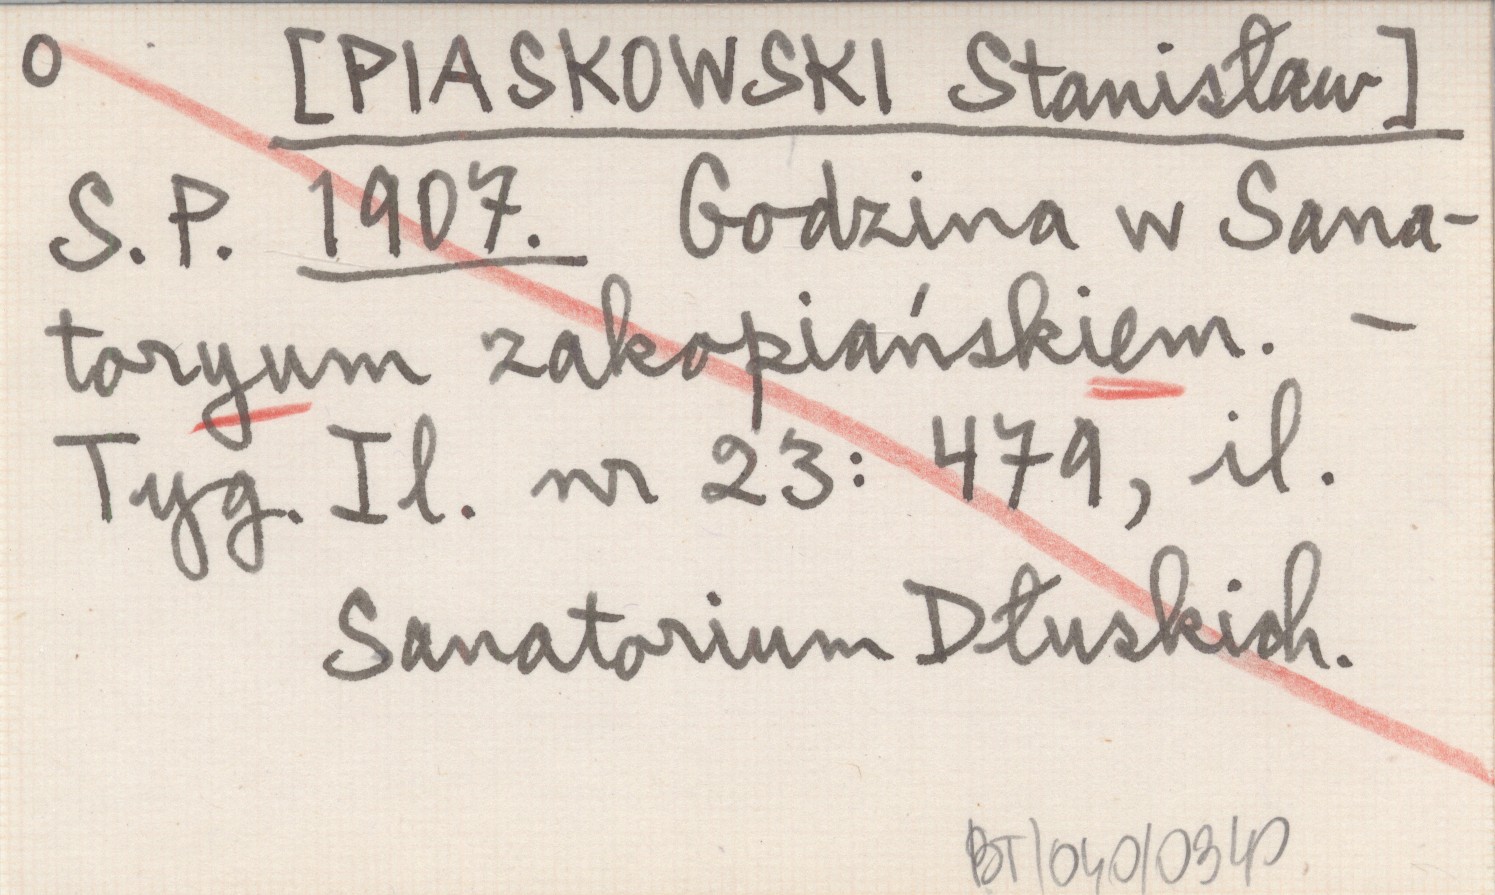 o [PIASKOWSKI Stanisław]
S.P. 1907. Godzina w Sana-
toryum zakopiańskiem. –
Tyg. Il. nr 23: 479, il.
Sanatorium Dłuskich.
BT/040/0340